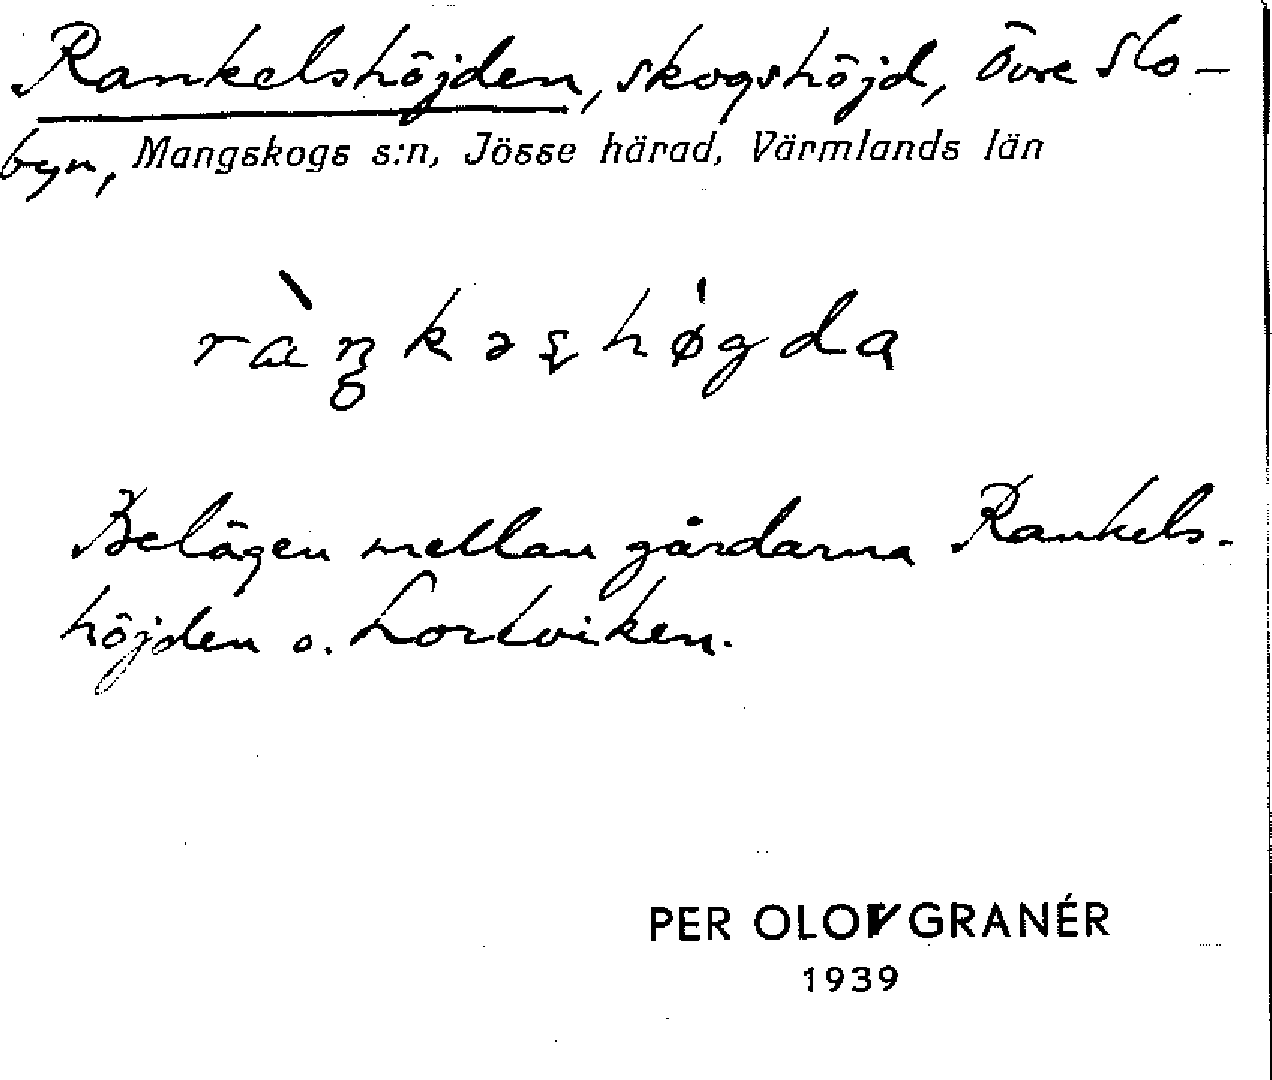 Rankelshöjden, skogshöjd, Övre Slo-
byn, Mangskogs s:n, Jösse härad, Värmlands län
Belägen mellan gårdarna Rankels-
höjden o. Lortviken.
PER OLOV GRANÉR
1939